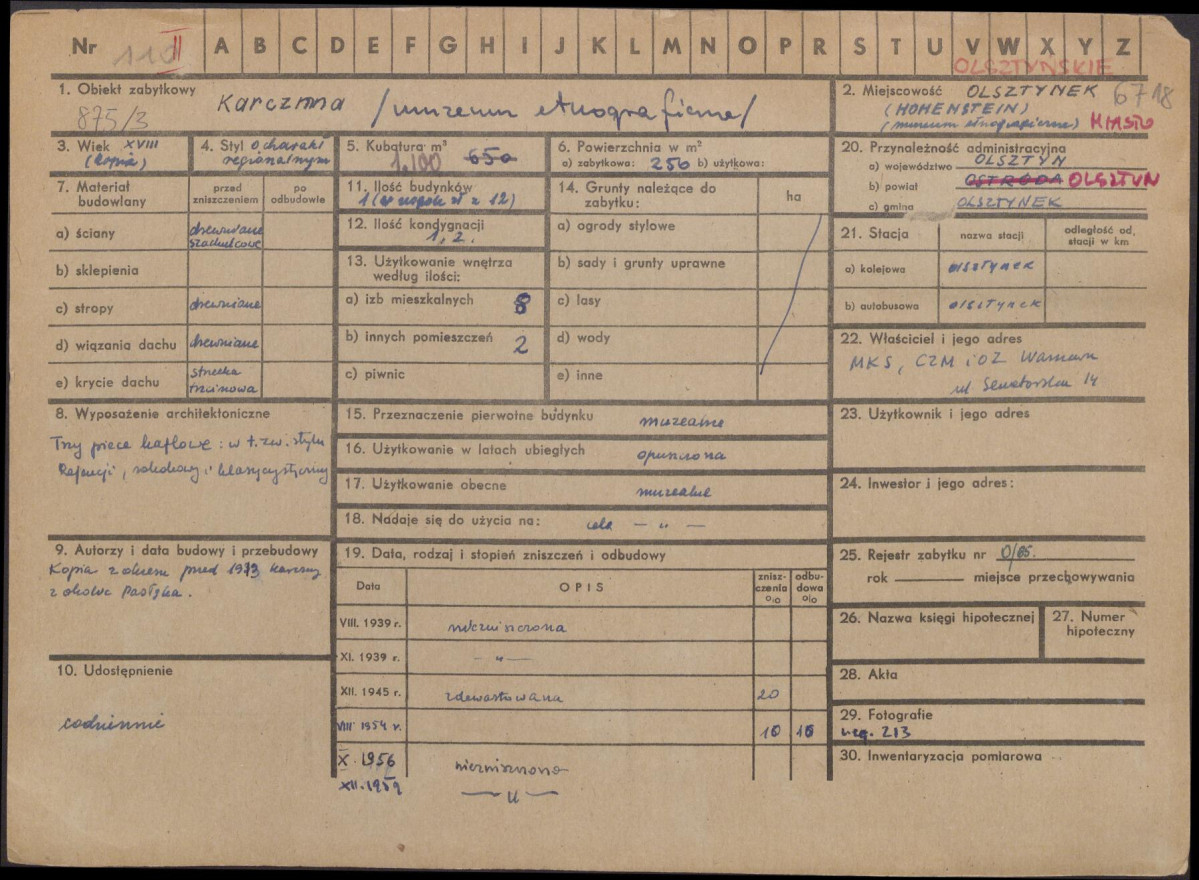 Nr 110 II A B C D E F G H I J K L M N O P R S T U V W X Y Z
OLSZTYŃSKIE
1. Obiekt zabytkowy Karczma /muzeum etnograficzne/
875/3
2. Miejscowość OLSZTYNEK 6718
(HOHENSTEIN)
(muzeum etnograficzne) MIASTO
3. Wiek XVIII
(kopia)
4. Styl o charakt
regionalnym
5. Kubatura m³
1.100 650
6. Powierzchnia w m²
a) zabytkowa: 250 b) użytkowa:
20. Przynależność administracyjna
a) województwo OLSZTYN
b) powiat OSTRÓDA OLSZTYN
c) gmina OLSZTYNEK
7. Materiał budowlany
przed zniszczeniem
po odbudowie
a) ściany drewniane
szachulcowe
b) sklepienia
c) stropy drewniane
d) wiązania dachu drewniane
e) krycie dachu strzecha
trzcinowa
11. Ilość budynków
1 (w zespole z 12)
12. Ilość kondygnacji
1, 2.
13. Użytkowanie wnętrza
według ilości:
a) izb mieszkalnych 8
b) innych pomieszczeń 2
c) piwnic
14. Grunty należące do
zabytku:
ha
a) ogrody stylowe
b) sady i grunty uprawne
c) lasy
d) wody
e) inne
21. Stacja
nazwa stacji
odległość od,
stacji w km
a) kolejowa olsztynek
b) autobusowa olsztynek
22. Właściciel i jego adres
MKS, CZM i OZ Warszawa
ul Senatorska 14
8. Wyposażenie architektoniczne
Trzy piece kaflowe: w t.zw. stylu
Regencji, rokokowy i klasycystyczny
15. Przeznaczenie pierwotne budynku muzealne
16. Użytkowanie w latach ubiegłych opuszczona
17. Użytkowanie obecne muzealne
18. Nadaje się do użycia na: cele — „ —
23. Użytkownik i jego adres
24. Inwestor i jego adres:
9. Autorzy i data budowy i przebudowy
Kopia z okresu przed 1913 karczmy
z okolic Pasłęka.
19. Data, rodzaj i stopień zniszczeń i odbudowy
Data
OPIS
znisz-
czenia
o/o
odbu-
dowa
o/o
VIII. 1939 r. niezniszczona
XI. 1939 r. — „ —
XII. 1945 r. zdewastowana 20
VIII 1954 r. 10 10
X. 1956 niezniszczona
XII. 1959 — „ —
25. Rejestr zabytku nr 0/65.
rok miejsce przechowywania
26. Nazwa księgi hipotecznej
27. Numer
hipoteczny
10. Udostępnienie
codziennie
28. Akta
29. Fotografie
neg. 213
30. Inwentaryzacja pomiarowa